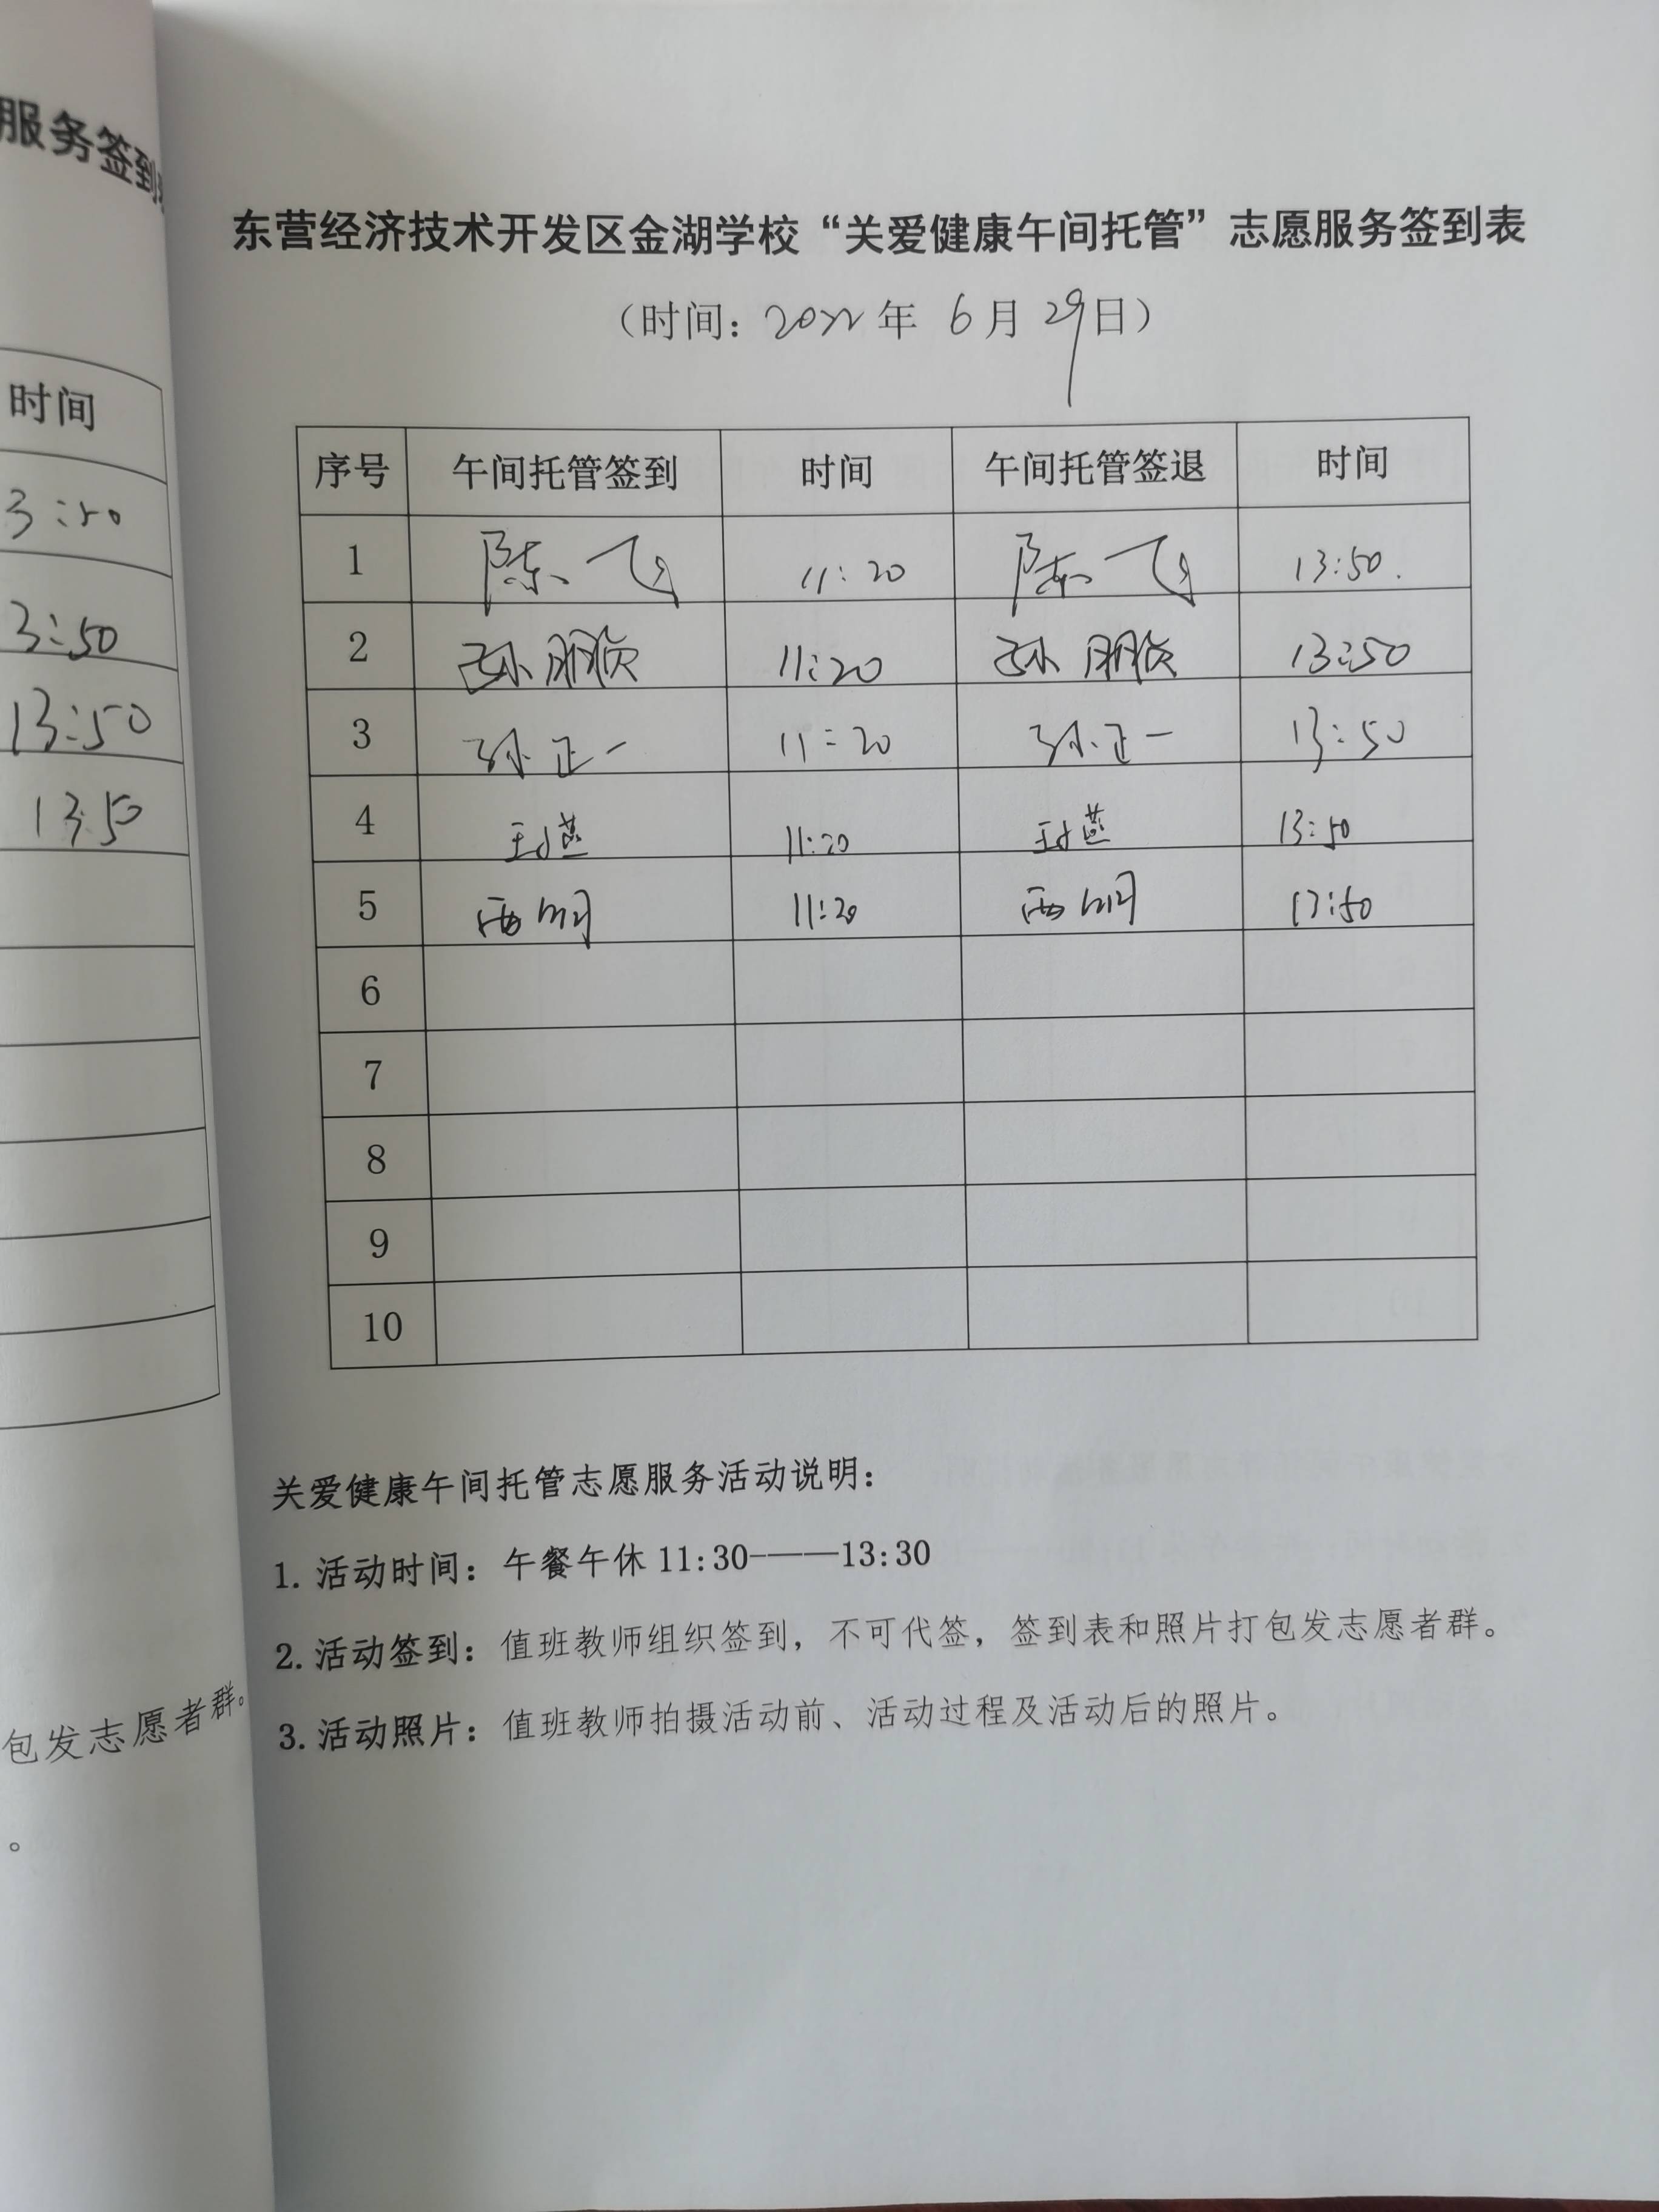 服务签到
时间
3:50
3:50
13:50
13:50
包发志愿者群。
。
东营经济技术开发区金湖学校“关爱健康午间托管”志愿服务签到表
（时间：2022年 6月29日）
序号 午间托管签到 时间 午间托管签退 时间
1 陈飞 11:20 陈飞 13:50.
2 孙 11:20 孙 13:50
3 孙正一 11:20 孙正一 13:50
4 11:20 13:50
5 11:20 13:50
6
7
8
9
10
关爱健康午间托管志愿服务活动说明：
1. 活动时间：午餐午休 11:30-———13:30
2. 活动签到：值班教师组织签到，不可代签，签到表和照片打包发志愿者群。
3. 活动照片：值班教师拍摄活动前、活动过程及活动后的照片。